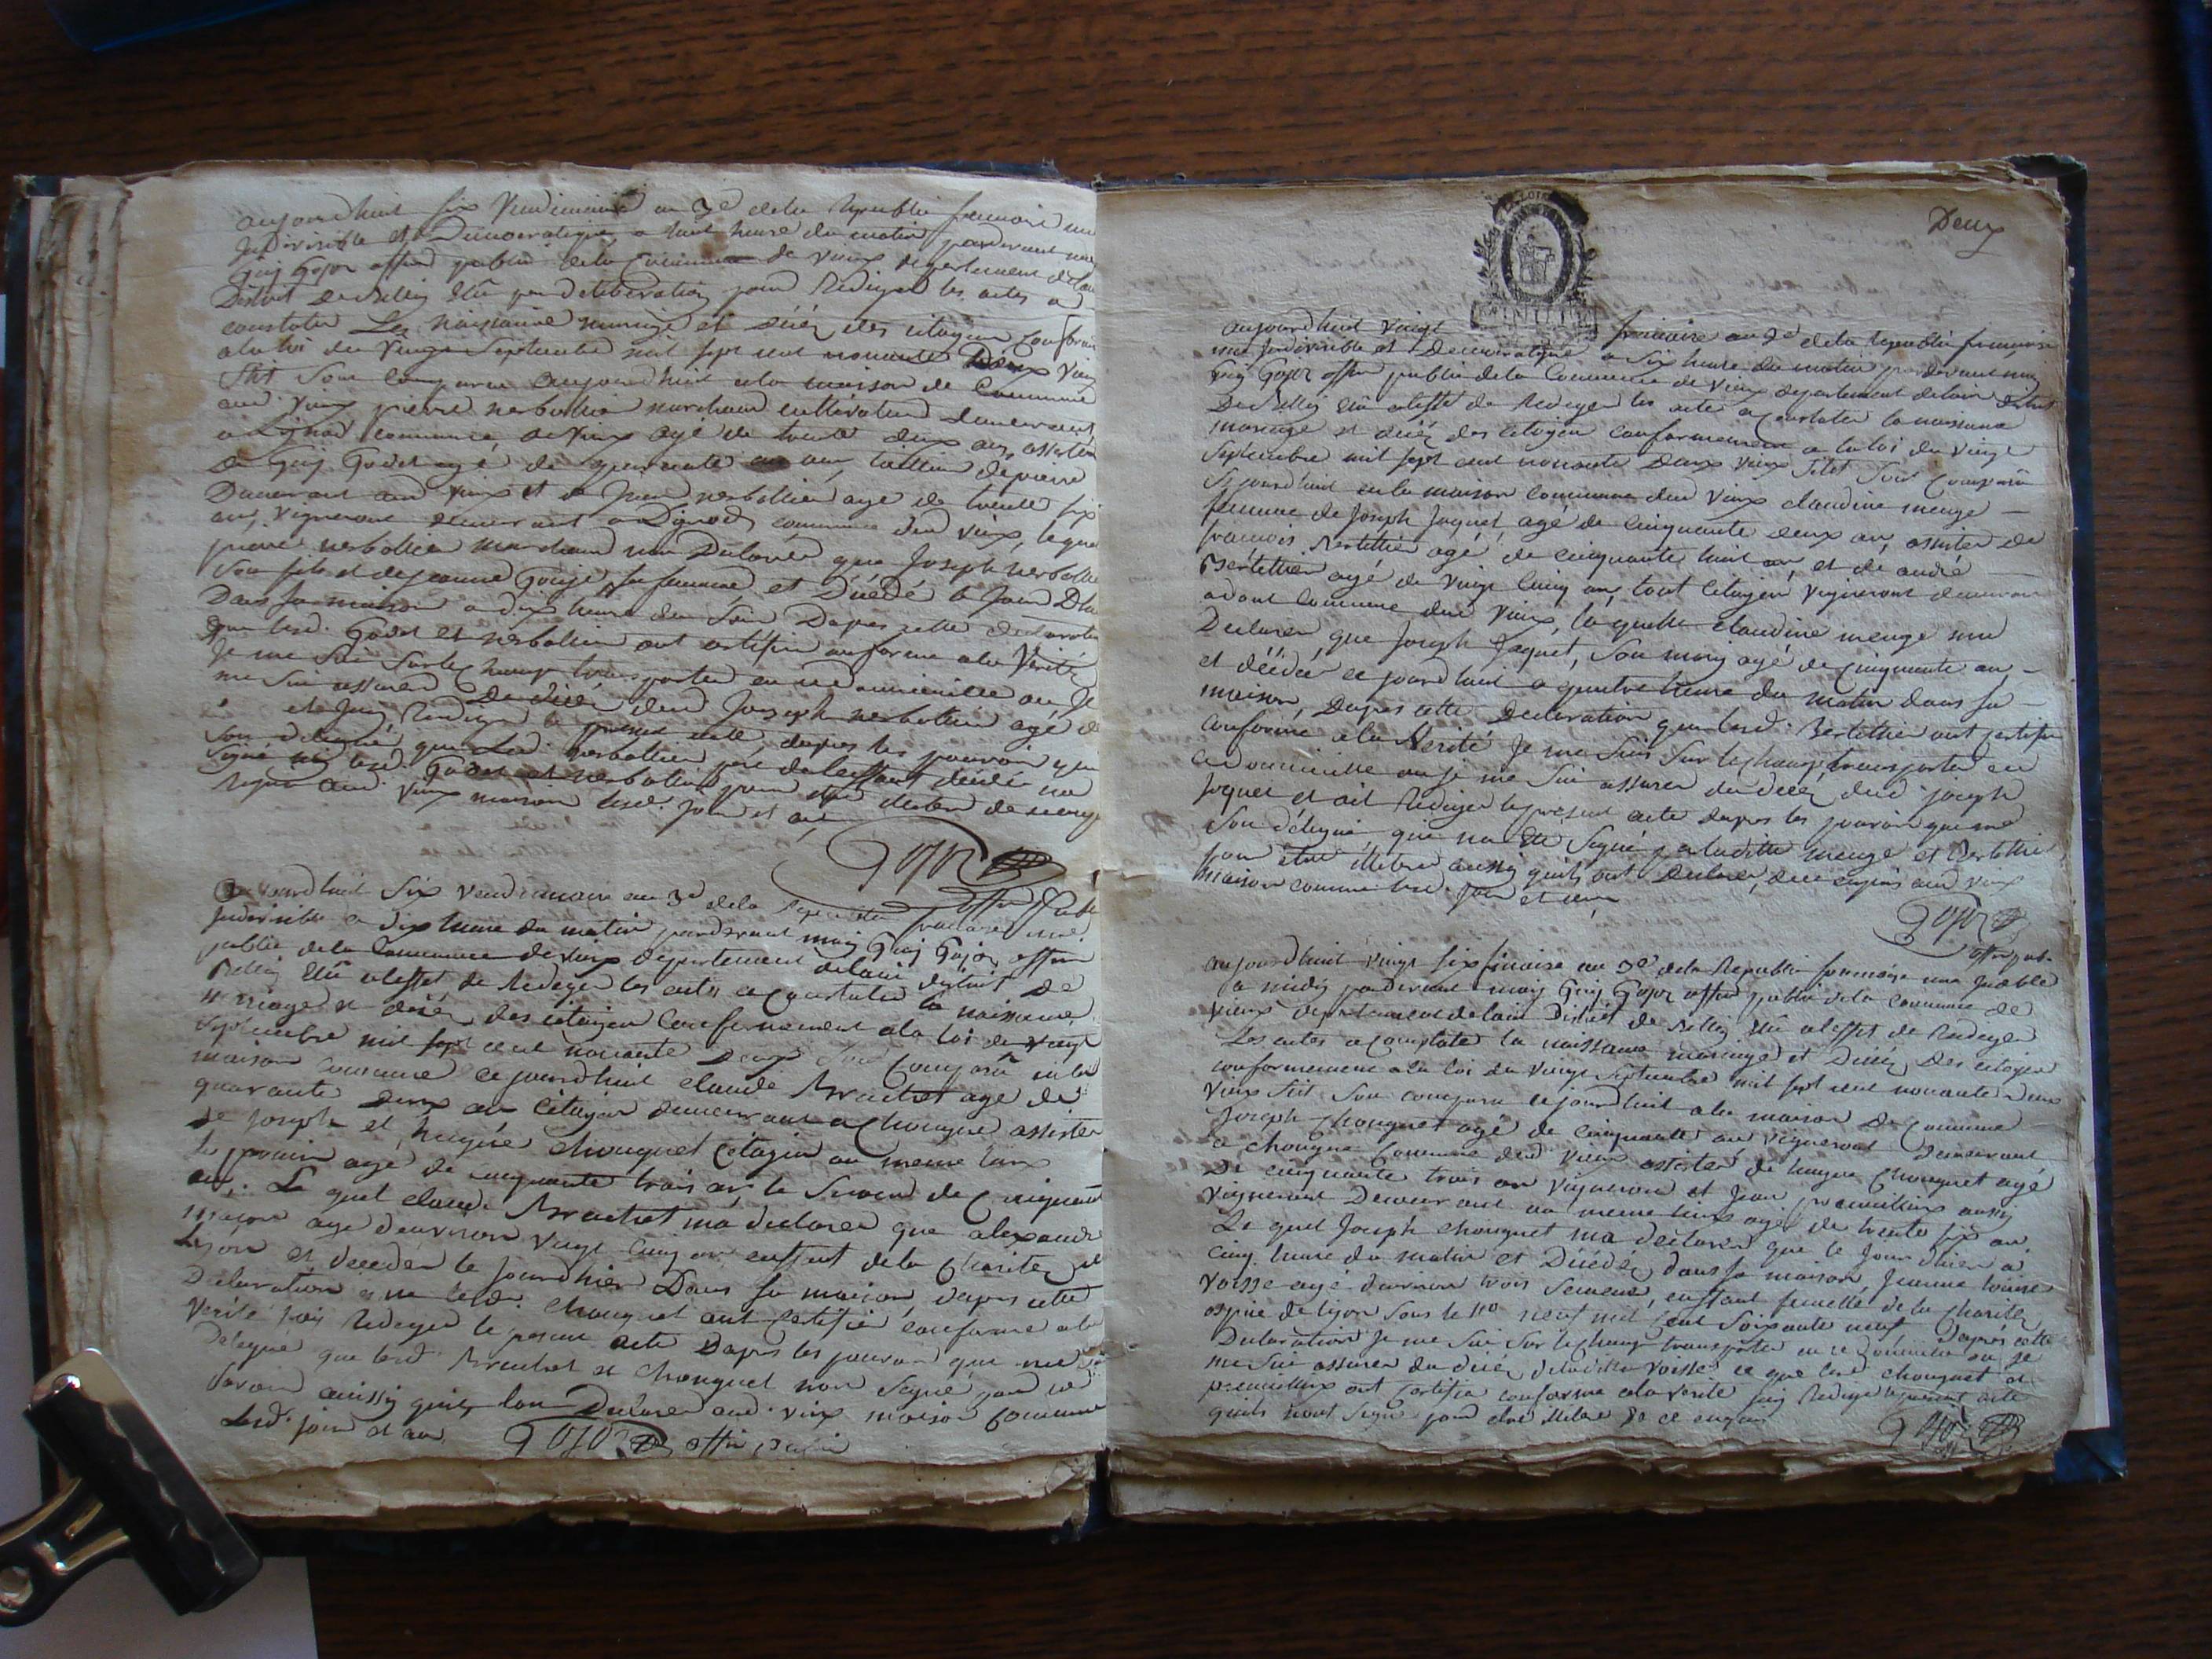 aujourdhuit six Vendemiaire an 3e dela Republi francoise une
Jndivisible et Democratique a huit heure du matin pardevant moy
Guy Gojoz offier public dela Commune de vieux departement delain
District de Belley Elu par deliberation pour Rediger les actes a
constater Les naissance mariage et décéz des citoyen conform
ala loi du Vingt Septembre mil sept cent nonante Deux vieux
Stil Sont comparu aujourdhuit ala maison de Commune
aud. vieux pierre nerbollier marchand cultivateur demeurant
a commune de vieux agé de trente deux an, assisten
de Guy Godet agé de quarante an, tallieur de pierre
Demeurant aud vieux et de Jean nerbollier age de trente six
an, vigneront demeurant a commune dud vieux, lequel
pierre nerbollier marchand ma Declarer que Joseph nerbollier
Son fils et de jeanne Gouje sa femme et Décédé le jour D'hi
Dans sa maison a dix heure du Soir Dapres cette declaration
que lesd. Godet et nerbollier ont certifier conforme ala Vérité
Je me Suis sur le champ transporter en ce domicille ou Je
me Sui assurer du décéz dud Joseph nerbollier agé de
et Jay Rediger le present acte, dapres les pouvoir qui
Son délégué, que Led. nerbollier pere de lenffant décédé na
Signé ni lesd. Godet et nerbollier pour etre illitere de ce enq
aud. vieux maison lesd. jour et an
Gojoz
offier Publi
aujourdhuit Six vendemiaire an 3e dela Republi francaise une
Jndivisible a dix heure du matin pardevant moy Guy Gojoz offier
public dela Commune de vieux departement delain district de
Belley Elu aleffet de Rediger les actes a Constater la naissance
mariage et décéz des citoyen Conformement ala loi du vingt
Septembre mil sept cent nonante Deux Sont Comparu en la
maison Commune ce jourdhuit claude Brachet age de
quarante deux an Citoyen demeurant a Chongne assister
de Joseph et hugue chouquet Citoyen au meme lieux
le premier agé de cinquante trois an, le Second de Cinquante
an,. Le quel claude Brachet ma declarer que alexandre
maçon age denviron vingt Cinq an enffent dela Charitez de
Lyon et deceder le jourdhier Dans sa maison, dapres cette
Declaration que lesd. Chouquet ont certifier conforme ala
Verité Jai Rediger le present acte Dapres les pouvoir qui me
Delegué que lesd Brachet et chouquet non Signé pour ne
Savoir aussy quils lon Declarer aud. vieux maison Commune
Lesd. jour et an Gojoz offier public
Deux
aujourdhuit vingt frimaire an 3e dela Republi francoise
une Jndivisible et Democratique a Six heure du matin pardevant moy
Guy Gojoz offier public dela Commune de vieux departement delain district
De Belley Elu aleffet de Rediger les acte a Constater la naissance
mariage et décéz des citoyen conformement a la loi du vingt
Septembre mil sept cent nonante Deux vieux Stil Sont comparu
ce jourdhuit en la maison Commune dud vieux claudine menge
femme de Joseph Jaquet, agé de Cinquante deux an, assister de
francois Bertettier agé de cinquante huit an, et de andré
Bertettier agé de Vingt Cinq an, tout Citoyen vigneront demeurant
adont Commune dud vieux, laquelle claudine menge ma
Declarer, que Joseph Jaquet, Son mary agé de Cinquante an
et décéder ce jourdhuit a quatre heure du matin dans sa
maison, Dapres cette Declaration que lesd. Bertettier ont certifier
conforme ala Verité Je me Suis Sur le champ transporter en
ce Domicille ou je me Sui assurer du décéz dud. Joseph
Jaquet et ait Rediger le present acte dapres les pouvoir qui me
Son délégué, qui na Ete Signé par laditte menge et Bertettier
pour etre illitere aussy quils ont Declarer, de ce enquis aud vieux
maison commune lesd. Jour et an
Gojoz
offier pub.
aujourdhuit vingt six frimaire an 3e dela Republi francoise une
a midy pardevant moy Guy Gojoz offier public dela Commune de
vieux departement delain District de Belley Elu aleffet de Rediger
Les actes a Constater la naissance mariage et Décéz Des citoyen
conformement ala loi du vingt Septembre mil sept cent nonante Deux
vieux Stil Son comparu ce jourdhuit ala maison De Commune
Joseph Chouquet agé de cinquante an vigneront demeurant
a chongne Commune dud vieux assister de hugue Chouquet agé
De cinquante trois an vigneron et Jean aussy
Vigneront Demeurant au meme lieux agé de trente six an
Le quel Joseph chouquet ma declarer que le Jour dhier a
cinq heure du matin et Décédéz dans sa maison, Jeanne louise
Voisse agé denviron trois Semenne, enffant femelle de la Charitez
ospice de Lyon Sous le no neuf mil cent Soixante neuf Dapres cette
Declaration Je me Sui Sur le champ transporter en ce Domicille ou je
me Sui assurer du décéz de laditte Voisse ce que lesd chouquet et
ont Certifier conforme ala verité Jay Redige le present acte
quils nont Signe pour etre illitere de ce enquis
Gojoz